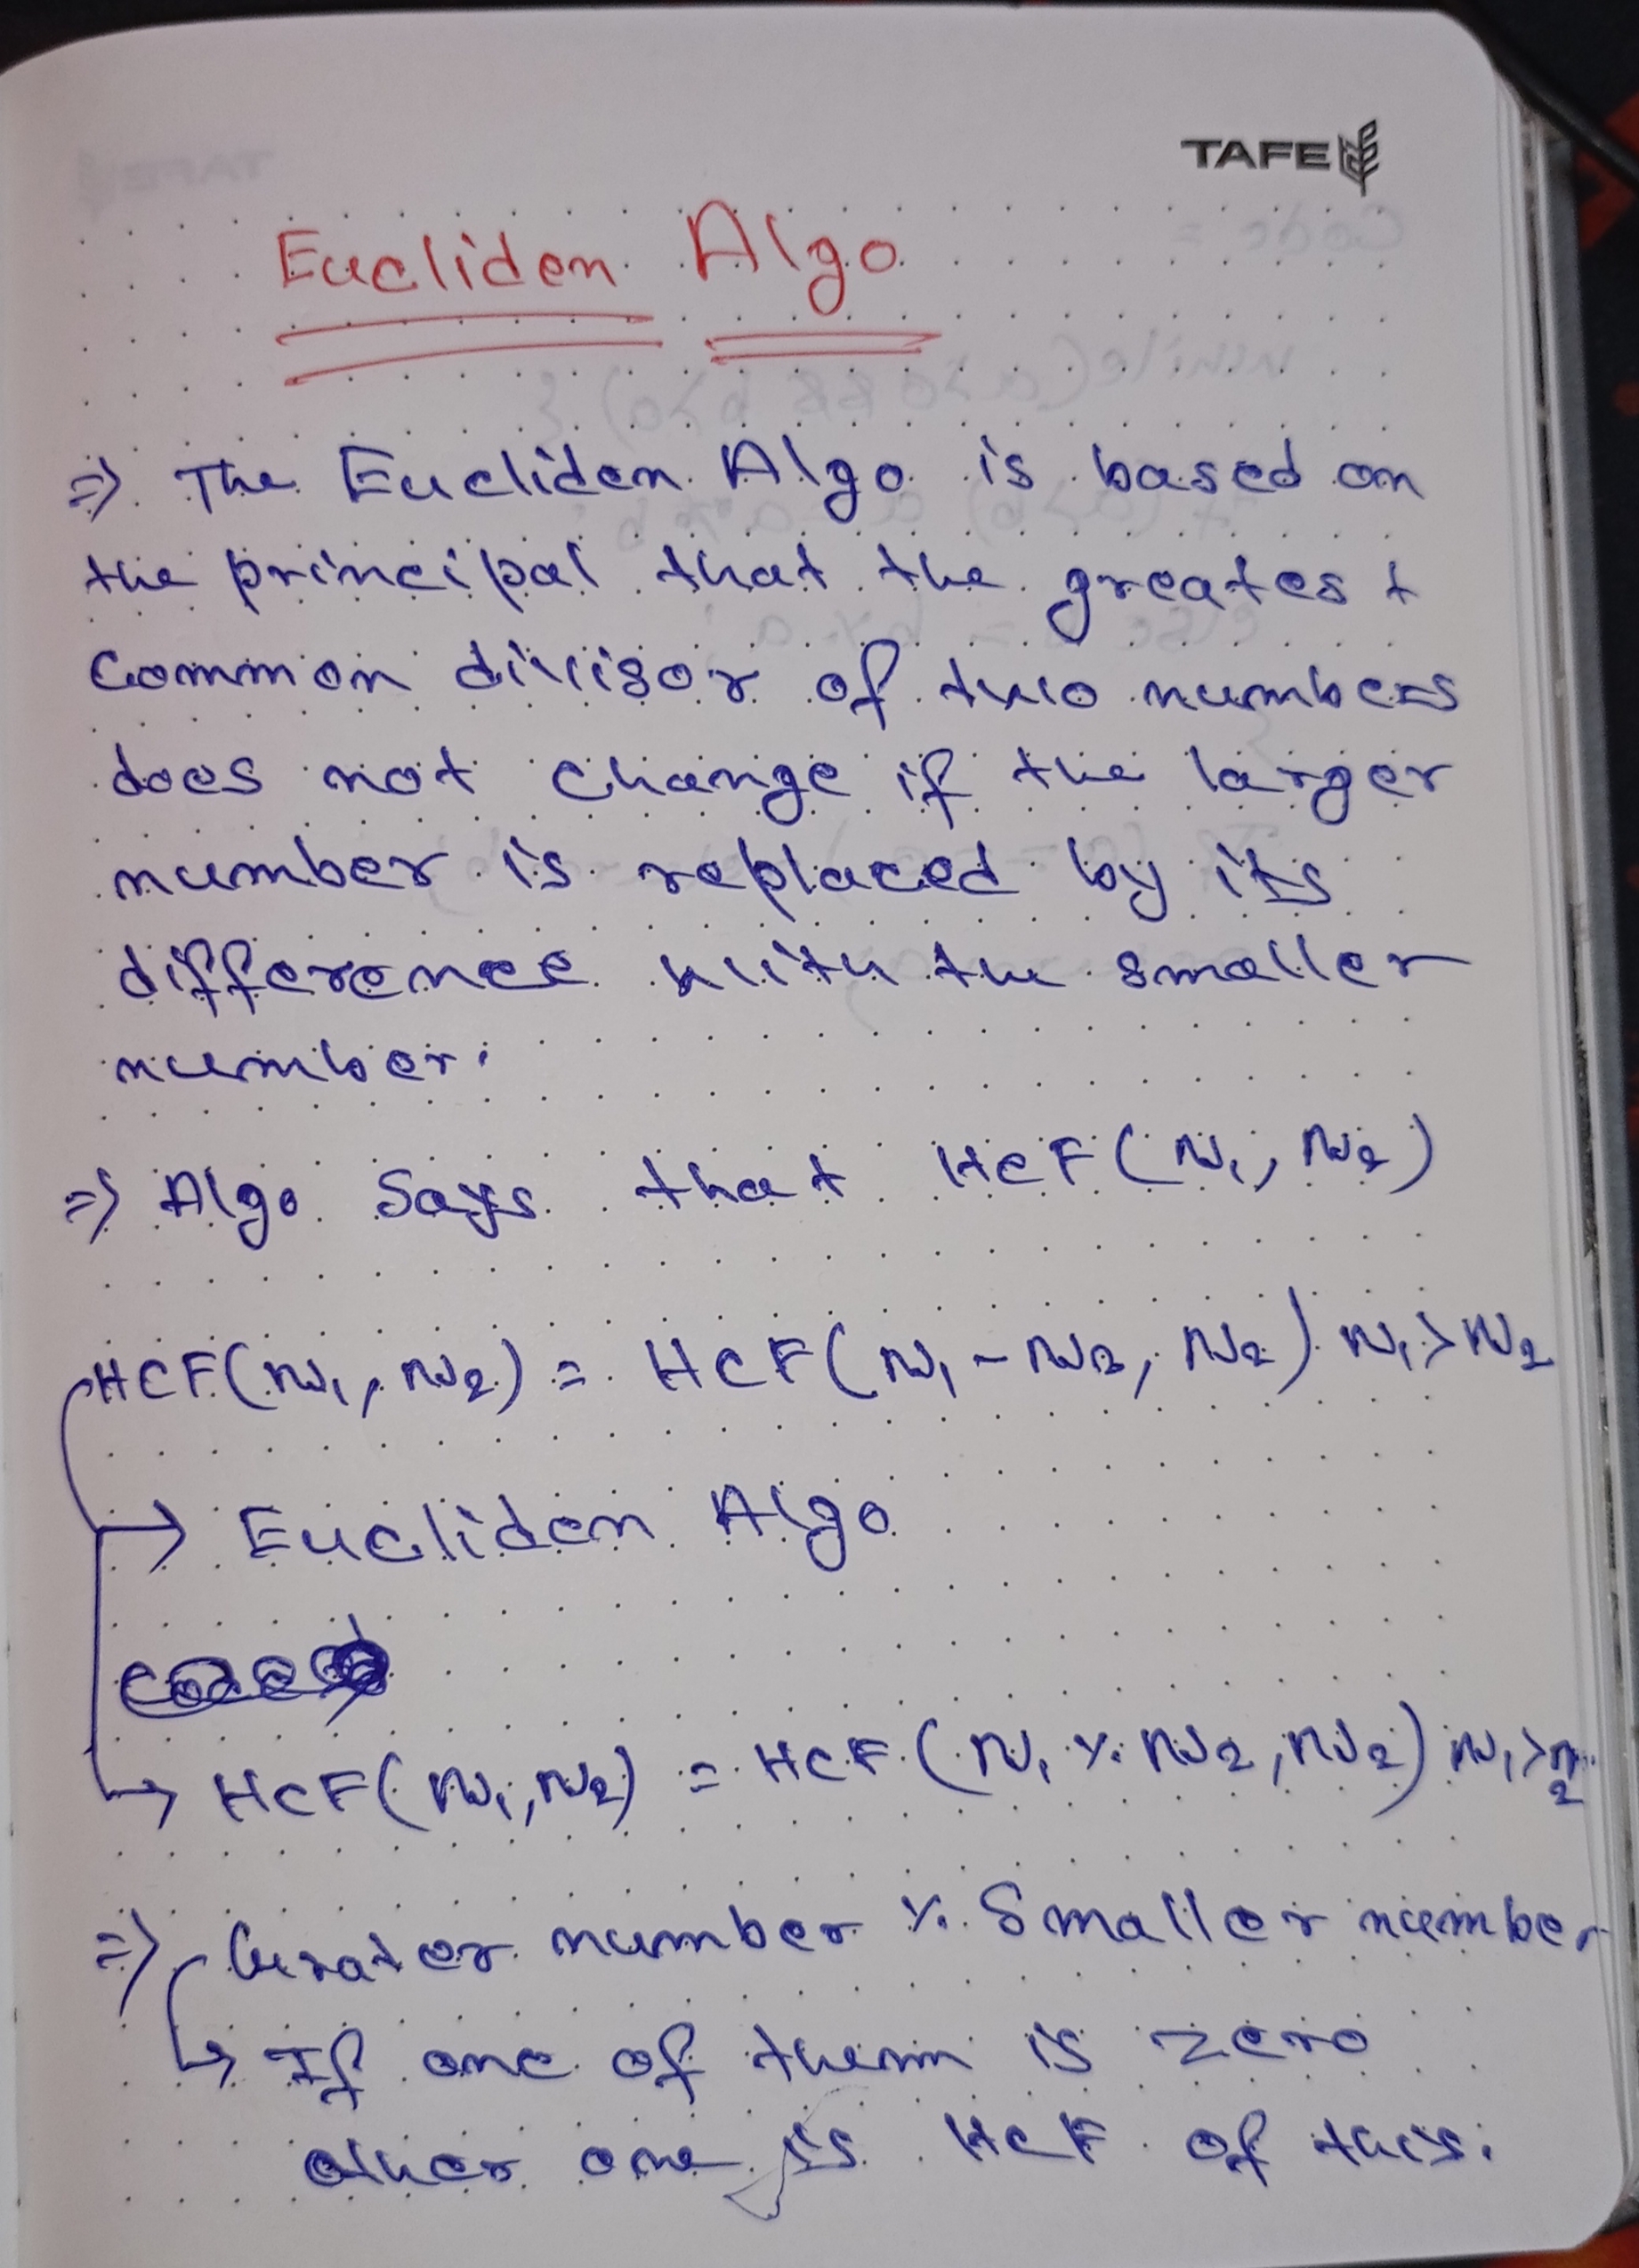 TAFE
Eucliden Algo
=> The Eucliden Algo is based on
the principal that the greatest
Common divisor of two numbers
does not change if the larger
number is replaced by its
difference with the smaller
number.
=> Algo Says that HCF(N1, N2)
HCF(N1, N2) = HCF(N1 - N2, N2) N1 > N2
→ Eucliden Algo
→ HCF(N1, N2) = HCF(N1 % N2, N2) N1 > n2
=> Grater number % Smaller number
↳ If one of them is zero
other one is HCF of this.